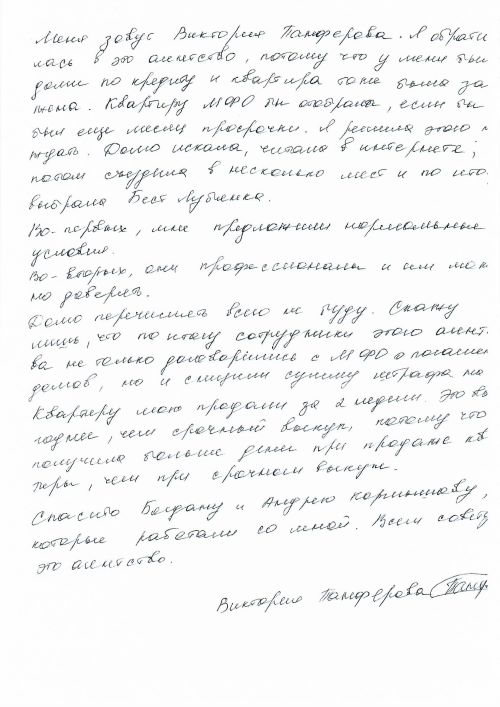 Меня зовут Виктория Панферова. Я обрати
лась в это агентство, потому что у меня был
долги по кредиту и квартира тоже была за
жена. Квартиру МФО бы отобрала, если бы
был еще месяц просрочки. Я решила этого н
ждать. Долго искала, читала в интернете,
потом съездила в несколько мест и по ито
выбрала Бест Лубянка.
Во-первых, мне предложили нормальные
условия.
Во-вторых, они профессионалы и им мож
но доверять.
Долго перечислять всего не буду. Скажу
лишь, что по итогу сотрудники этого агентс
ва не только договорились с МФО о погашени
долгов, но и снизили сумму штрафа на
Квартиру мою продали за 2 недели. Это вы
годнее, чем срочный выкуп, потому что
получила больше денег при продаже кв
тиры, чем при срочном выкупе.
Спасибо Богдану и Андрею
которые работали со мной. Всем совету
это агентство.
Виктория Панферова